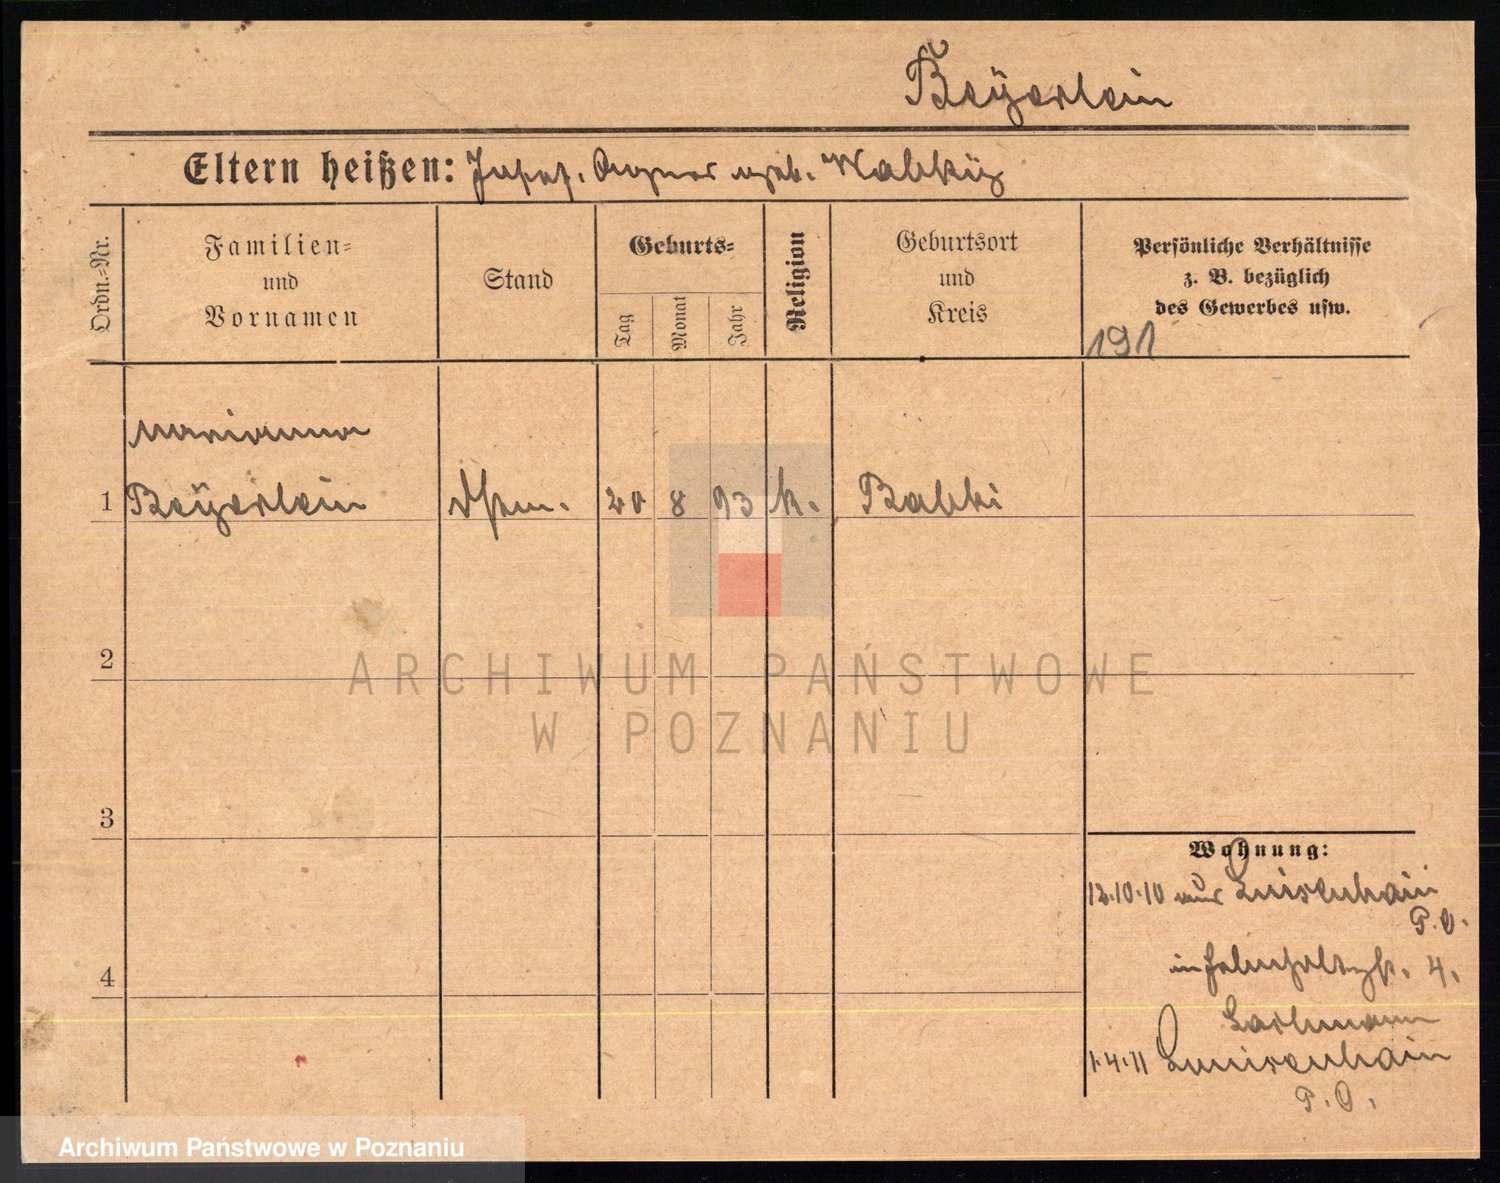 Beÿerlein
Eltern heißen: Josef. Agnes geb. Walkÿ
Ordn.-Nr.
Familien- und Vornamen
Stand
Geburts-
Tag
Monat
Jahr
Religion
Geburtsort und Kreis
Persönliche Verhältnisse
z. B. bezüglich
des Gewerbes usw.
191
Marianna
1 Beÿerlein 20 8 93 k. Babki
2
3
4
Wohnung:
12.10.10 aus Luisenhain
P.O.
4.
1.4.11 Luisenhain
P.O.
ARCHIWUM PAŃSTWOWE
W POZNANIU
Archiwum Państwowe w Poznaniu